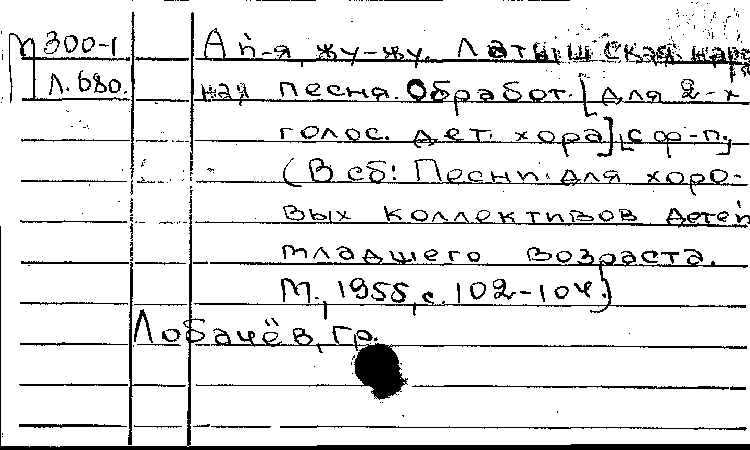 П 300-1 Ай-я, жу-жу. Латышская народ
Л.680. ная песня. Обработ. [для 2-х
голос. дет. хора], [с ф-п.]
(В сб: Песни для хоро-
вых коллективов детей
младшего возраста.
М., 1955, с. 102-104.)
Лобачёв, Гр.